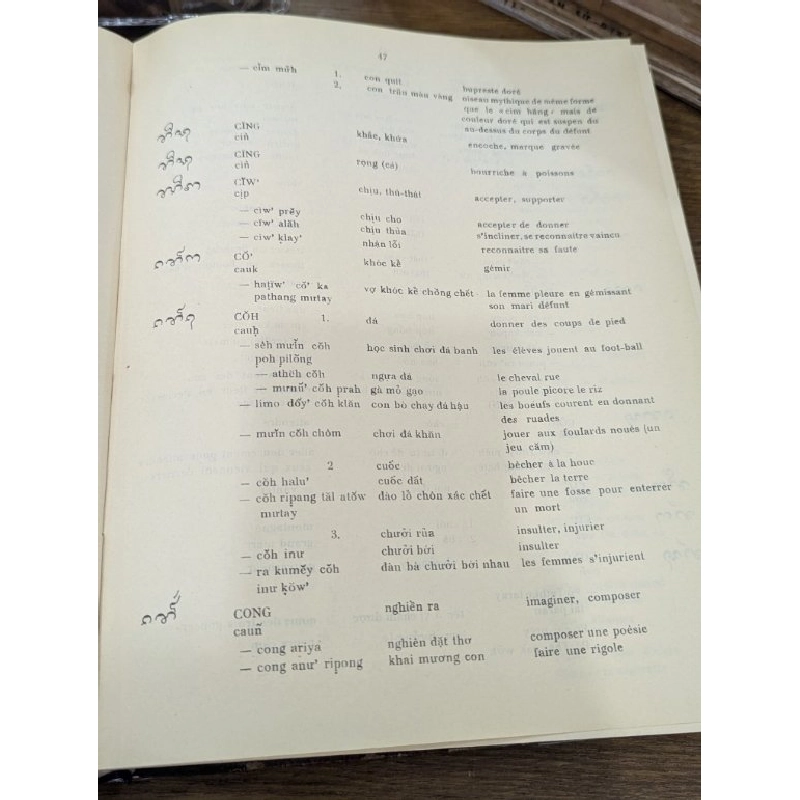 47
— cim mứh 1. con quit bupreste doré
2. con trâu màu vàng oiseau mythique de même forme
que le « cim hâng » mais de
couleur doré qui est suspen du
au-dessus du corps du défunt
CĬNG khắc, khứa encoche, marque gravée
ciñ
CĬNG rọng (cá) bourriche à poissons
ciñ
CĬW' chịu, thủ-thỉ accepter, supporter
cip
— ciw' prẽy chịu cho accepter de donner
— ciw' alăh chịu thùa s'incliner, se reconnaitre vaincu
— ciw' ḳlay' nhận lỗi reconnaitre sa faute
CŎ' khóc kể gémir
cauk
— haṭiw' cŏ' ka vợ khóc kể chồng chết la femme pleure en gémissant
pathang mưtay son mari défunt
CŎH 1. đá donner des coups de pied
cauḥ
— sèh mưĭn cŏh học sinh chơi đá banh les élèves jouent au foot-ball
poh pilŏng
— athĕh cŏh ngựa đá le cheval rue
— mưnŭ' cŏh prah gà mổ gạo la poule picore le riz
— limo đŏy' cŏh klăn con bò chạy đá hậu les boeufs courent en donnant
des ruades
— mưĭn cŏh chôm chơi đá khăn jouer aux foulards noués (un
jeu căm)
2 cuốc bêcher à la houe
— cŏh halu' cuốc đất bêcher la terre
— cŏh ripang tăl atŏw đào lỗ chôn xác chết faire une fosse pour enterrer
mưtay un mort
3. chưởi rủa insulter, injurier
— cŏh inư chưởi bới insulter
— ra kumĕy cŏh đàn bà chưởi bới nhau les femmes s'injurient
inư ḳŏw'
CONG nghiền ra imaginer, composer
cauñ
— cong ariya nghiền đặt thơ composer une poésie
— cong anư' ripong khai mương con faire une rigole